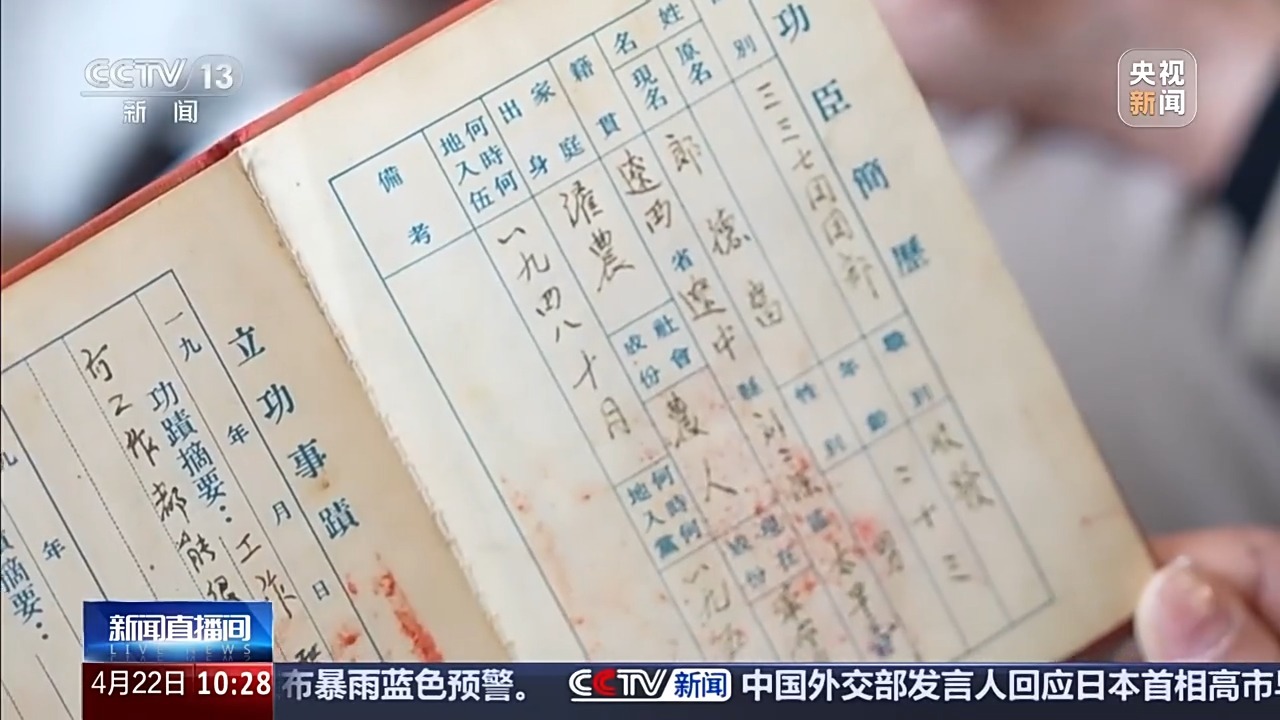 CCTV 13
新闻
央视
新闻
功臣簡歷
別
三三七团团部
職別
收發
姓名
原名
現名
郎德昌
年齡
三十三
性別
男
籍貫
遼西省遼中縣
家庭出身
雇農
社會成份
農人
現在成份
何時何地入伍
一九四八十月
何時何地入黨
一九
備考
立功事蹟
一九 年 月 日
功蹟摘要：工作
工作都能
年
摘要：
新闻直播间
LIVE NEWS
4月22日 10:28
布暴雨蓝色预警。
CCTV新闻 中国外交部发言人回应日本首相高市